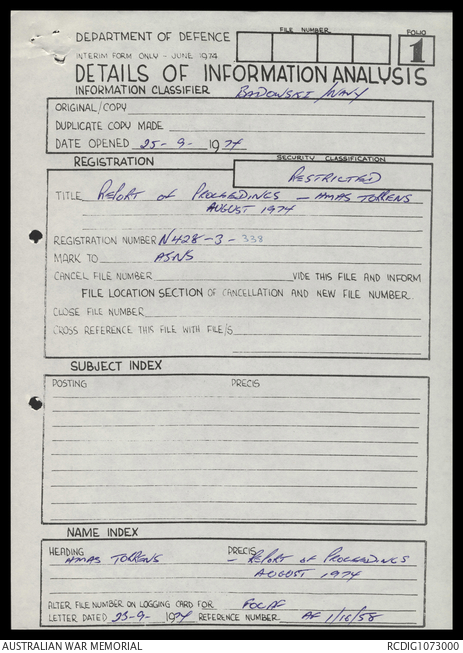 DEPARTMENT OF DEFENCE
FILE NUMBER
FOLIO
1
INTERIM FORM ONLY - JUNE 1974
DETAILS OF INFORMATION ANALYSIS
INFORMATION CLASSIFIER BADOWSKI/NAVY
ORIGINAL/COPY
DUPLICATE COPY MADE
DATE OPENED 25-9- 1974
REGISTRATION
SECURITY CLASSIFICATION
RESTRICTED
TITLE REPORT OF PROCEEDINGS - HMAS TORRENS
AUGUST 1974
REGISTRATION NUMBER N428-3-338
MARK TO ASNS
CANCEL FILE NUMBER VIDE THIS FILE AND INFORM
FILE LOCATION SECTION OF CANCELLATION AND NEW FILE NUMBER
CLOSE FILE NUMBER
CROSS REFERENCE THIS FILE WITH FILE/S
SUBJECT INDEX
POSTING PRECIS
NAME INDEX
HEADING PRECIS
HMAS TORRENS - REPORT OF PROCEEDINGS
AUGUST 1974
ALTER FILE NUMBER ON LOGGING CARD FOR FOCAF
LETTER DATED 23-9- 1974 REFERENCE NUMBER AF 1/16/58
AUSTRALIAN WAR MEMORIAL
RCDIG1073000